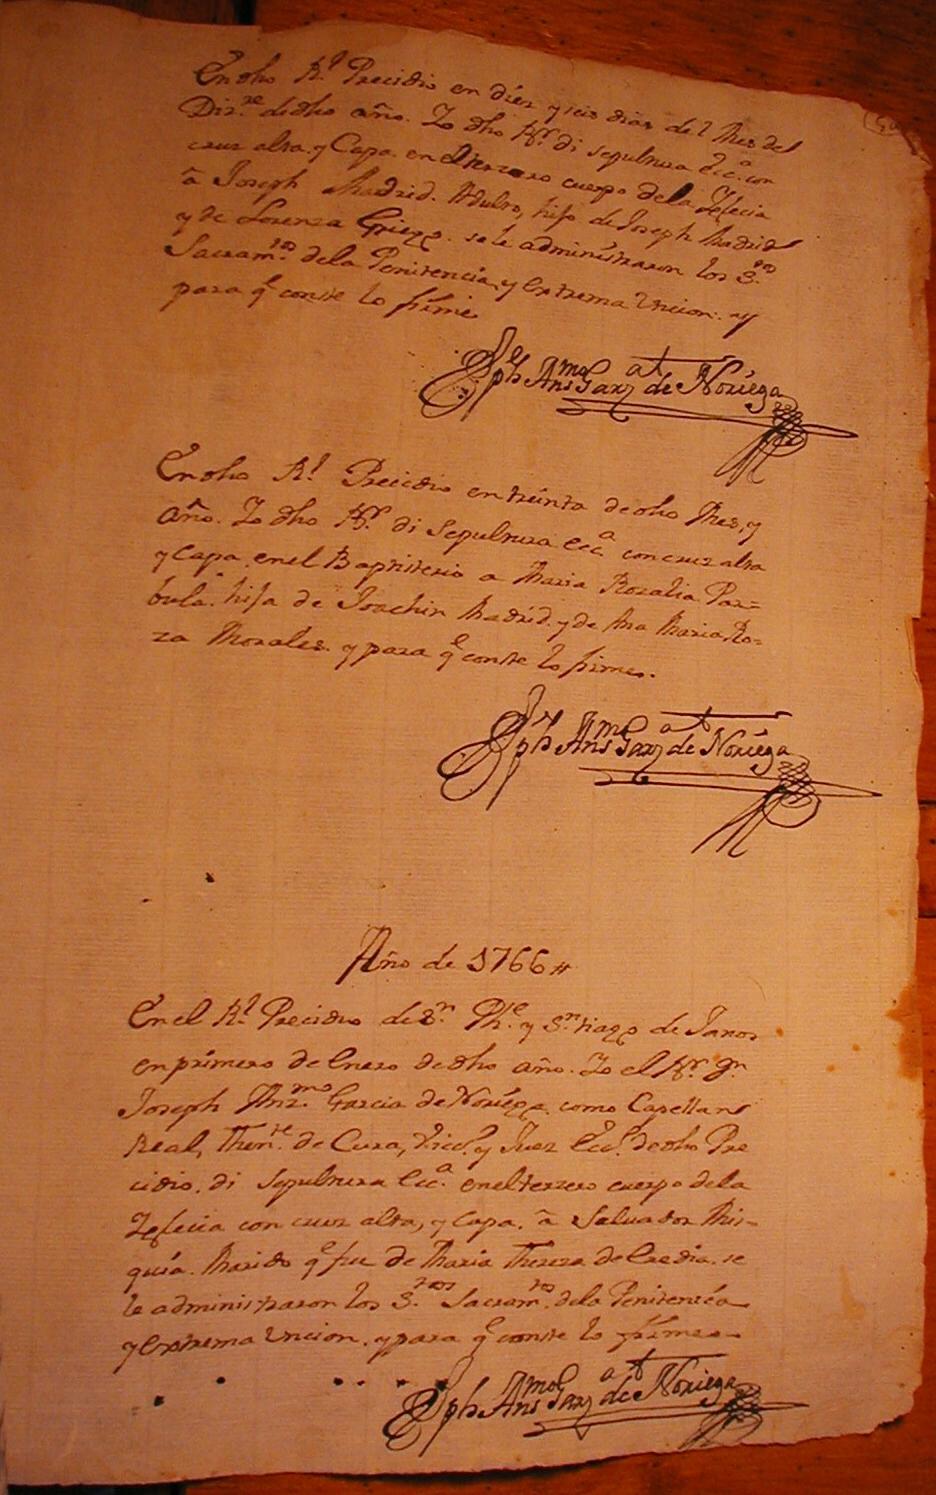 En dho Rl. Precidio en diez y seis dias del Mes de
Dizre. de dho año. Yo dho Br. di sepultura ecca. con
cruz alta y Capa en el terzero cuerpo de la Yglecia
â Joseph Madrid. Adulto, hijo de Joseph Madrid
y de Lorenza Griego. se le administraron los Stos
Sacramtos. de la Penitencia, y extrema Uncion. y
para qe conste lo firmé
Jph Anmo Garz de Noriega
En dho Rl. Precidio en treinta de dho Mes, y
año. Yo dho Br. di Sepultura ecca. con cruz alta
y Capa en el Baptisterio a Maria Rozalia Par=
bula. hija de Joachin Madrid. y de Ana Maria Ro=
za Morales. y para qe conste lo firmé.
Jph Anmo Garz de Noriega
Año de 1766
En el Rl. Precidio de Sn. Phe. y Sntiago de Janos
en primero de Enero de dho año. Yo el Br. Dn
Joseph Anzmo Garcia de Noriega como Capellan
Real, Thente. de Cura, Vicco. y Juez Ecco. de dho Pre
cidio. di sepultura ecca. en el terzero cuerpo de la
Yglecia con cruz alta, y Capa. â Salvador Mis=
quia. Marido qe fue de Maria Thereza de Eredia. se
le administraron los Stos Sacramtos. de la Penitencia
y extrema Uncion. y para qe conste lo firmé
Jph Anmo Garz de Noriega